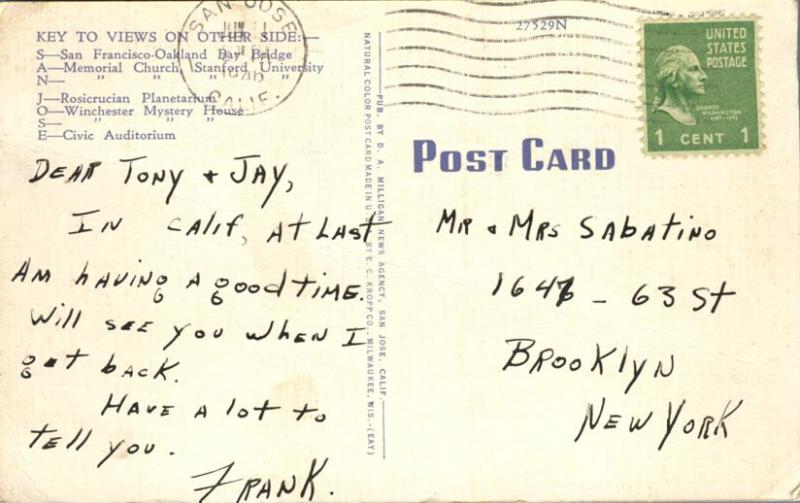 KEY TO VIEWS ON OTHER SIDE:—
S—San Francisco-Oakland Bay Bridge
A—Memorial Church, Stanford University
N— " " " "
J—Rosicrucian Planetarium
O—Winchester Mystery House
S— " " "
E—Civic Auditorium
SAN JOSE
1946
CALIF.
27529N
UNITED
STATES
POSTAGE
GEORGE
WASHINGTON
1 CENT 1
POST CARD
PUB. BY D. A. MILLIGAN NEWS AGENCY, SAN JOSE, CALIF.
NATURAL COLOR POST CARD MADE IN U. S. BY E. C. KROPP CO., MILWAUKEE, WIS.—(EAY)
DEAR TONY + JAY,
IN CALIF, AT LAST
AM having A good TIME.
Will SEE you WHEN I
get back.
HAVE A lot to
tell you.
FRANK.
MR + MRS SABATINO
1647 - 63 St
BROOKlyN
NEW YORK